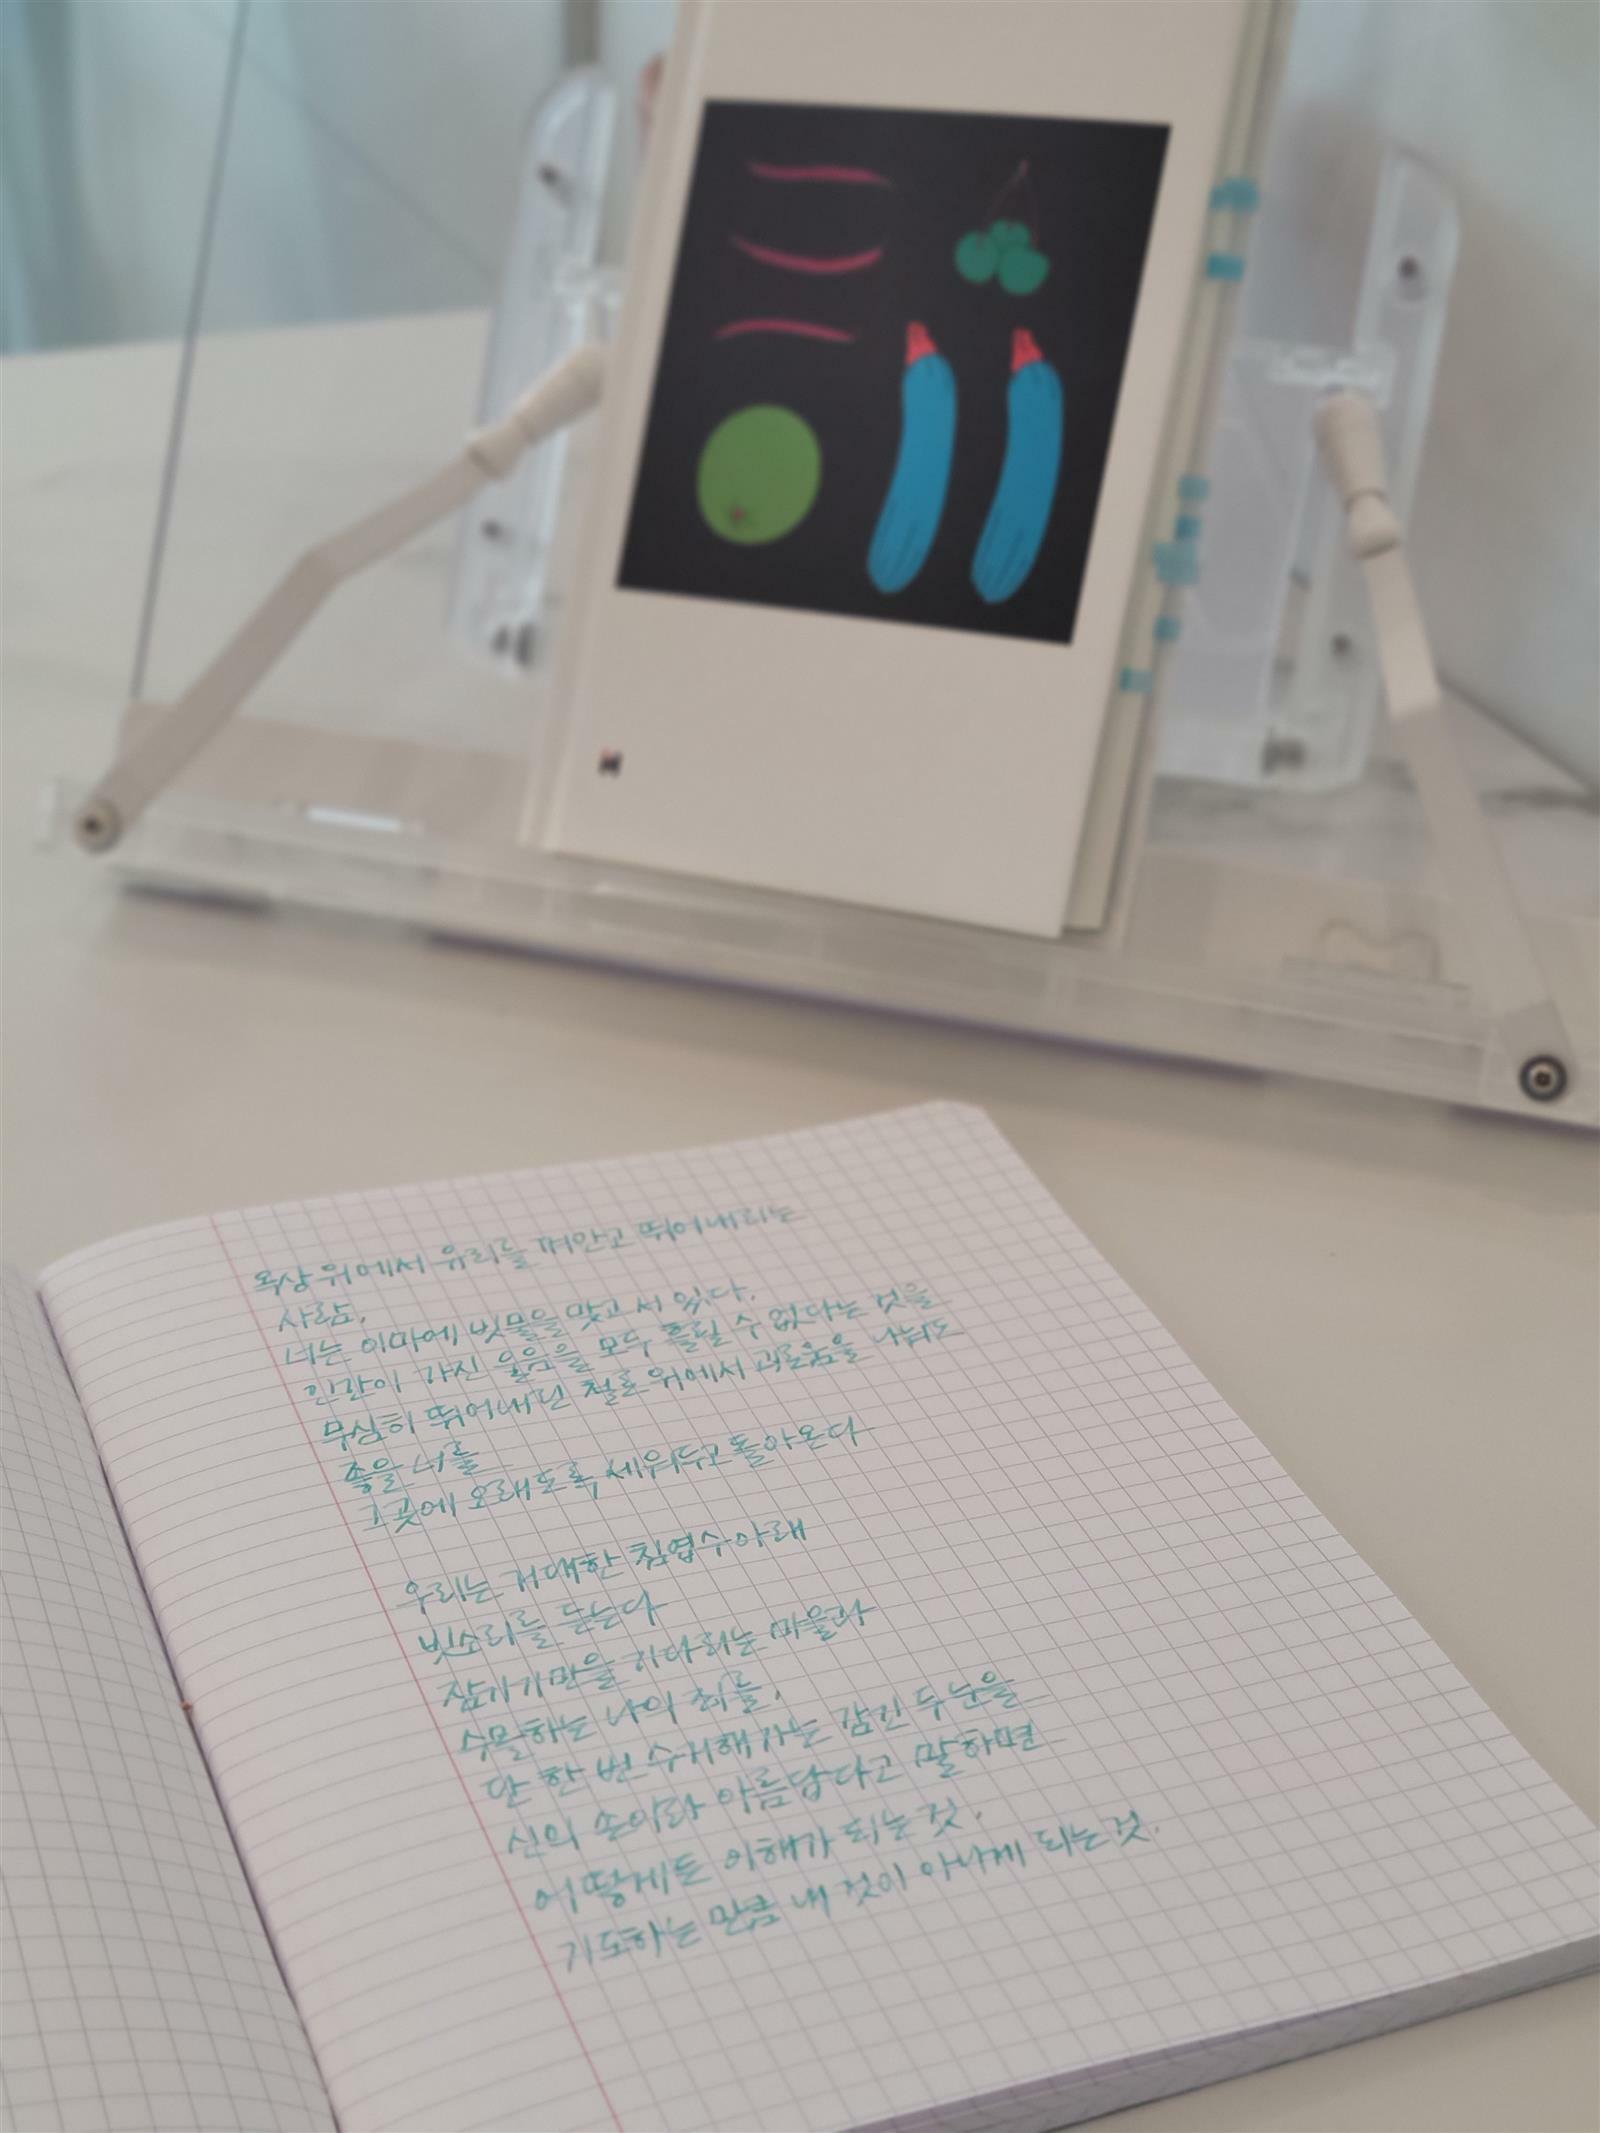 옥상 위에서 유리를 껴안고 뛰어내리는
사람.
너는 이마에 빗물을 맞고 서 있다.
인간이 가진 울음을 모두 흘릴 수 없다는 것을
무심히 뛰어내린 철로 위에서 괴로움을 나눠도
좋을 너를
그곳에 오래도록 세워두고 돌아온다
우리는 거대한 침엽수 아래
빗소리를 듣는다
잠기기만을 기다리는 마을과
수몰하는 나의 죄를.
단 한 번 수거해 가는 감긴 두 눈을
신의 손이라 아름답다고 말하면
어떻게든 이해가 되는 것.
기도하는 만큼 내 것이 아니게 되는 것.